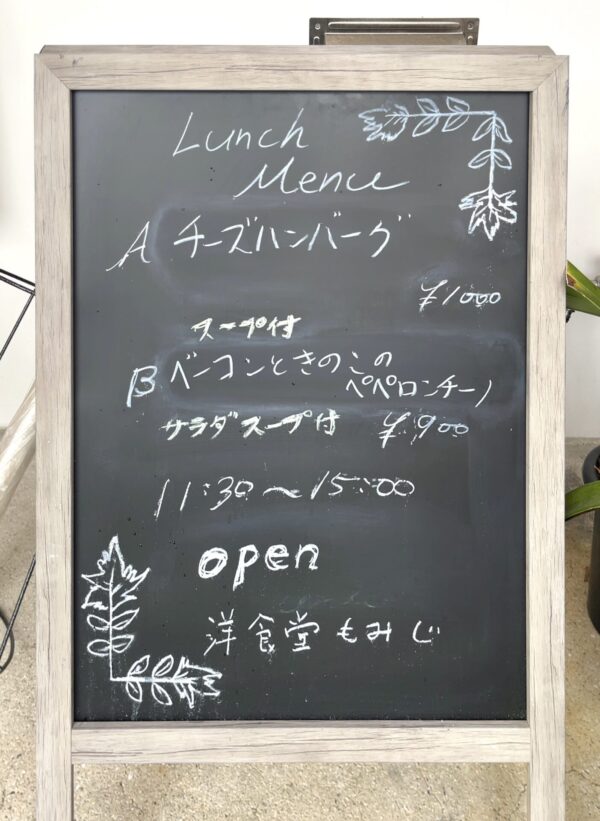 Lunch
Menu
A チーズハンバーグ
¥1000
スープ付
B ベーコンときのこの
ペペロンチーノ
サラダスープ付 ¥900
11:30〜15:00
open
洋食堂もみじ